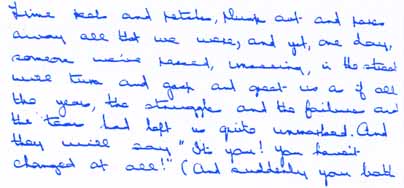 Time heals and patches, plucks out and pares
away all that we were, and yet, one day,
someone we've passed, unseeing, in the street
will turn and gasp and greet us as if all
the years, the struggle and the failures and
the tears had left us quite unmarked. And
they will say "It's you! You haven't
changed at all!" (And suddenly you both